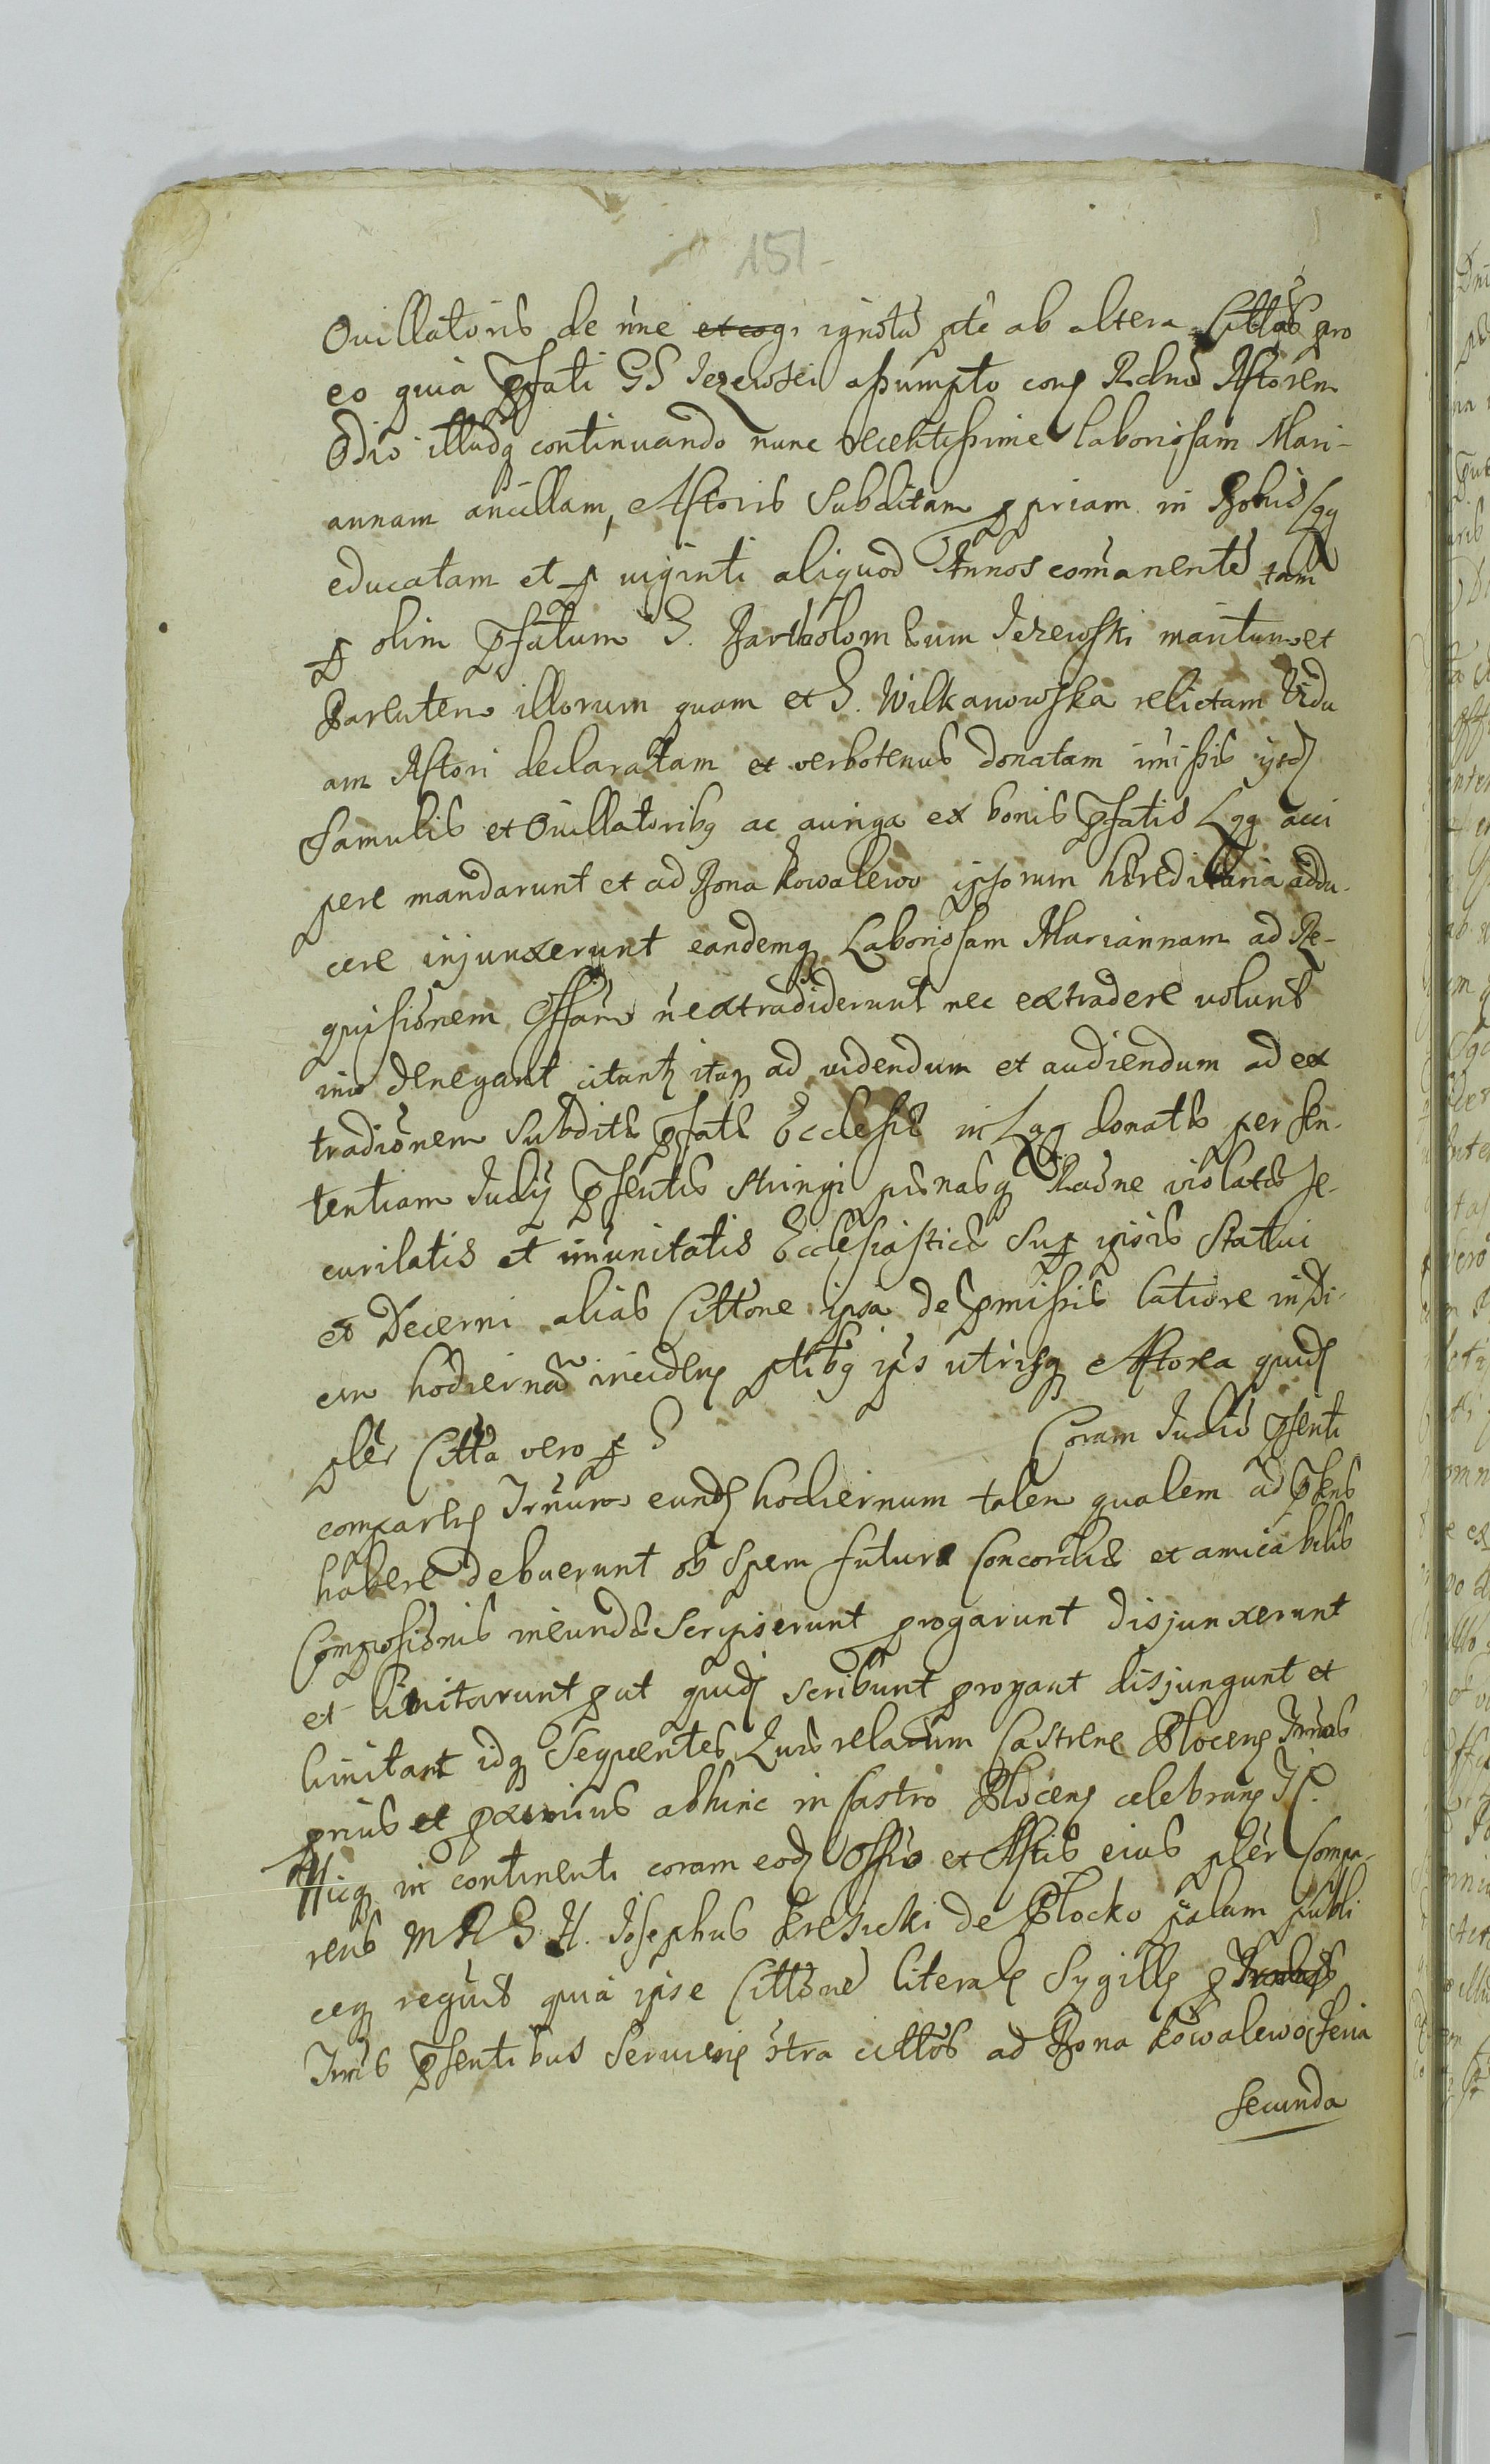 151
Ovillatoris de nne et cog. ignotu pte ab altera Cittos pro
eo quia pfati GG Jezewscii assumpto cong Rdnd Actorem
Odio illudq continuando nunc recentissime laboriosam Mari-
annam ancillam, Actoris subditam ppriam in Bonis Lgg
educatam et p viginti aliquod Annos comanente tam
p olim pfatum G. Bartholomeum Jezewski maritum et
Parentem illorum quam et G. Wilkanowska relictam Vidu
am Actori declaratam et verbotenus donatam imissis ijsd
famulis et Ovillatoribq ac auriga ex bonis pfatis Lgg acci
pere mandarunt et ad Bona Kowalewo ipsorum hereditaria addu-
cere injunxerunt eandemq Laboriosam Mariannam ad Re-
quisionem Offam n extradiderunt nec extradere volunt
imo denegant citantq itaq ad videndum et audiendum ad ex
tradionem Subdite pfate Ecclesie in Lgg donate per sen-
tentiam Judij psentis stringi penasq Raone violate se-
curitatis et imunitatis Ecclesiastice sup ipsis statui
et Decerni alias Cittone ipsa de pmissis latiore in di-
em hodiernam inciden ptibq ijs utrisq Actorea quid
pler Citta vero p G Coram Judio psenti
comparen Trnum eund hodiernum talem qualem ad pns
habere debuerunt ob spem future Concordie et amicabilis
Composionis ineunde scripserunt progarunt disjunxerunt
et limitarunt put quid scribunt progant disjungunt et
limitant idq Sequentes Querelarum Castren Plocen Trnos
prius et pximius abhinc in Castro Plocen celebran Jc.
Hicq in continenti coram eod Offio et Actis eius pler Compa-
rens MRGH. Josephus Kresicki de Plocko palam publi
ceq reguit quia ipse Cittone literal Sygill p
Trnis psentibus servien ctra cittos ad Bona Kowalewo feria
secunda